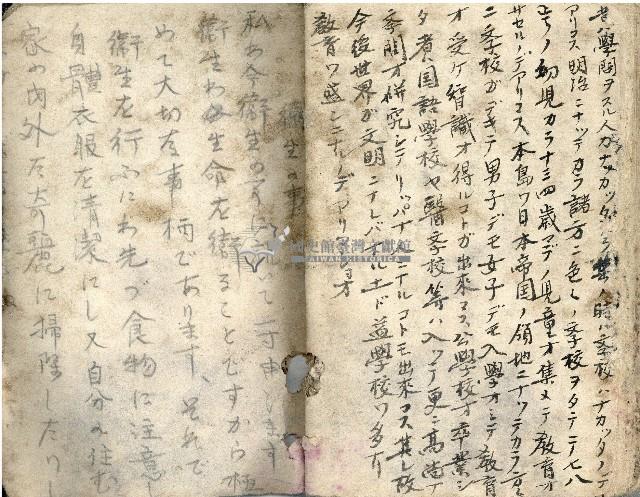 昔ハ學問ヲスル人ガナカッタシ其ノ時ハ學校ハナカッタノデ
アリマス明治ニナッテカラ諸方ニ色々ノ學校ヲタテテ七八
ノ幼児カラ十三四歳マデノ児童オ集メテ教育オ
サセルノデアリマス本島ワ日本帝国ノ領地ニナッテカラ
ニ學校ガデキテ男子デモ女子デモ入學オシテ教育
オ受ケ智識オ得ルコトガ出來マス公學校オ卒業シ
タ者ハ国語學校ヤ醫學校等ハ入ッテ更ニ高尚ナ
學問オ研究シテリッパナ ニナルコトモ出來マス其レ故
今後世界が文明ニナレバナルホド益學校ワ多ク
教育ワ盛ンニナルノデアリマショオ
衛生の事
私わ今衛生の事 に 就いて一寸申します
衛生わ 生命を衛ることですから極
めて大切な事柄であります、それで
衛生を行ふにわ先づ食物に注意し
身體衣服を清潔にし又自分の住む
家の内外を奇麗に掃除したりし
國史館臺灣文獻館
TAIWAN HISTORICA